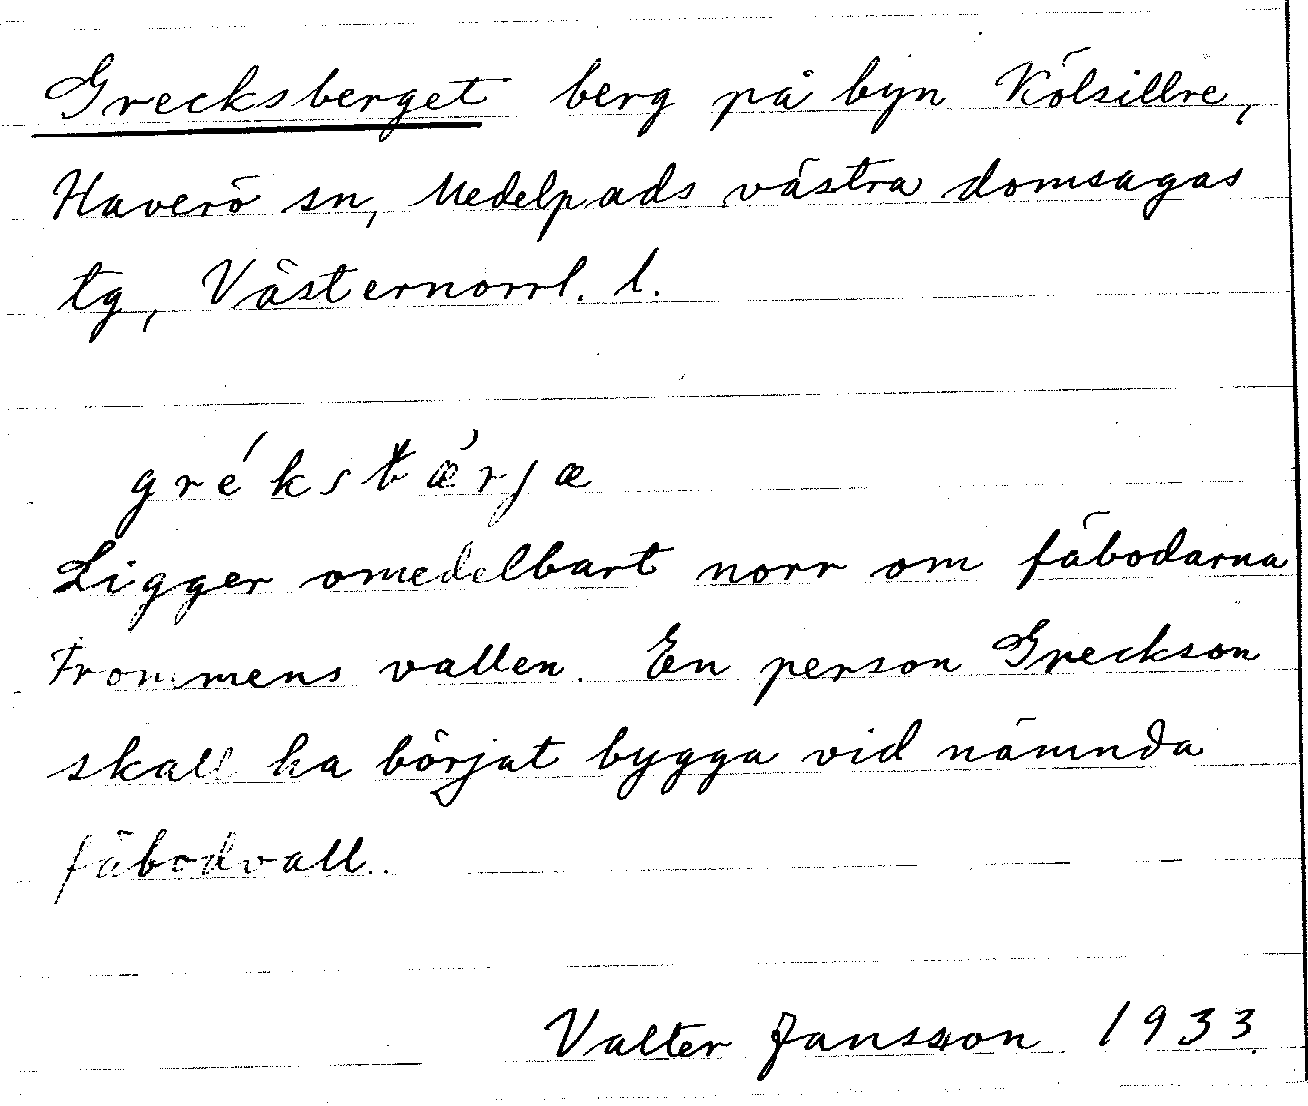 Grecksberget berg på byn Kölsillre,
Haverö sn, Medelpads västra domsagas
tg, Västernorrl. l.
grékstǽrjæ
Ligger omedelbart norr om fäbodarna
Frommens vallen. En person Greckson
skall ha börjat bygga vid nämnda
fäbodvall.
Valter Jansson 1933.